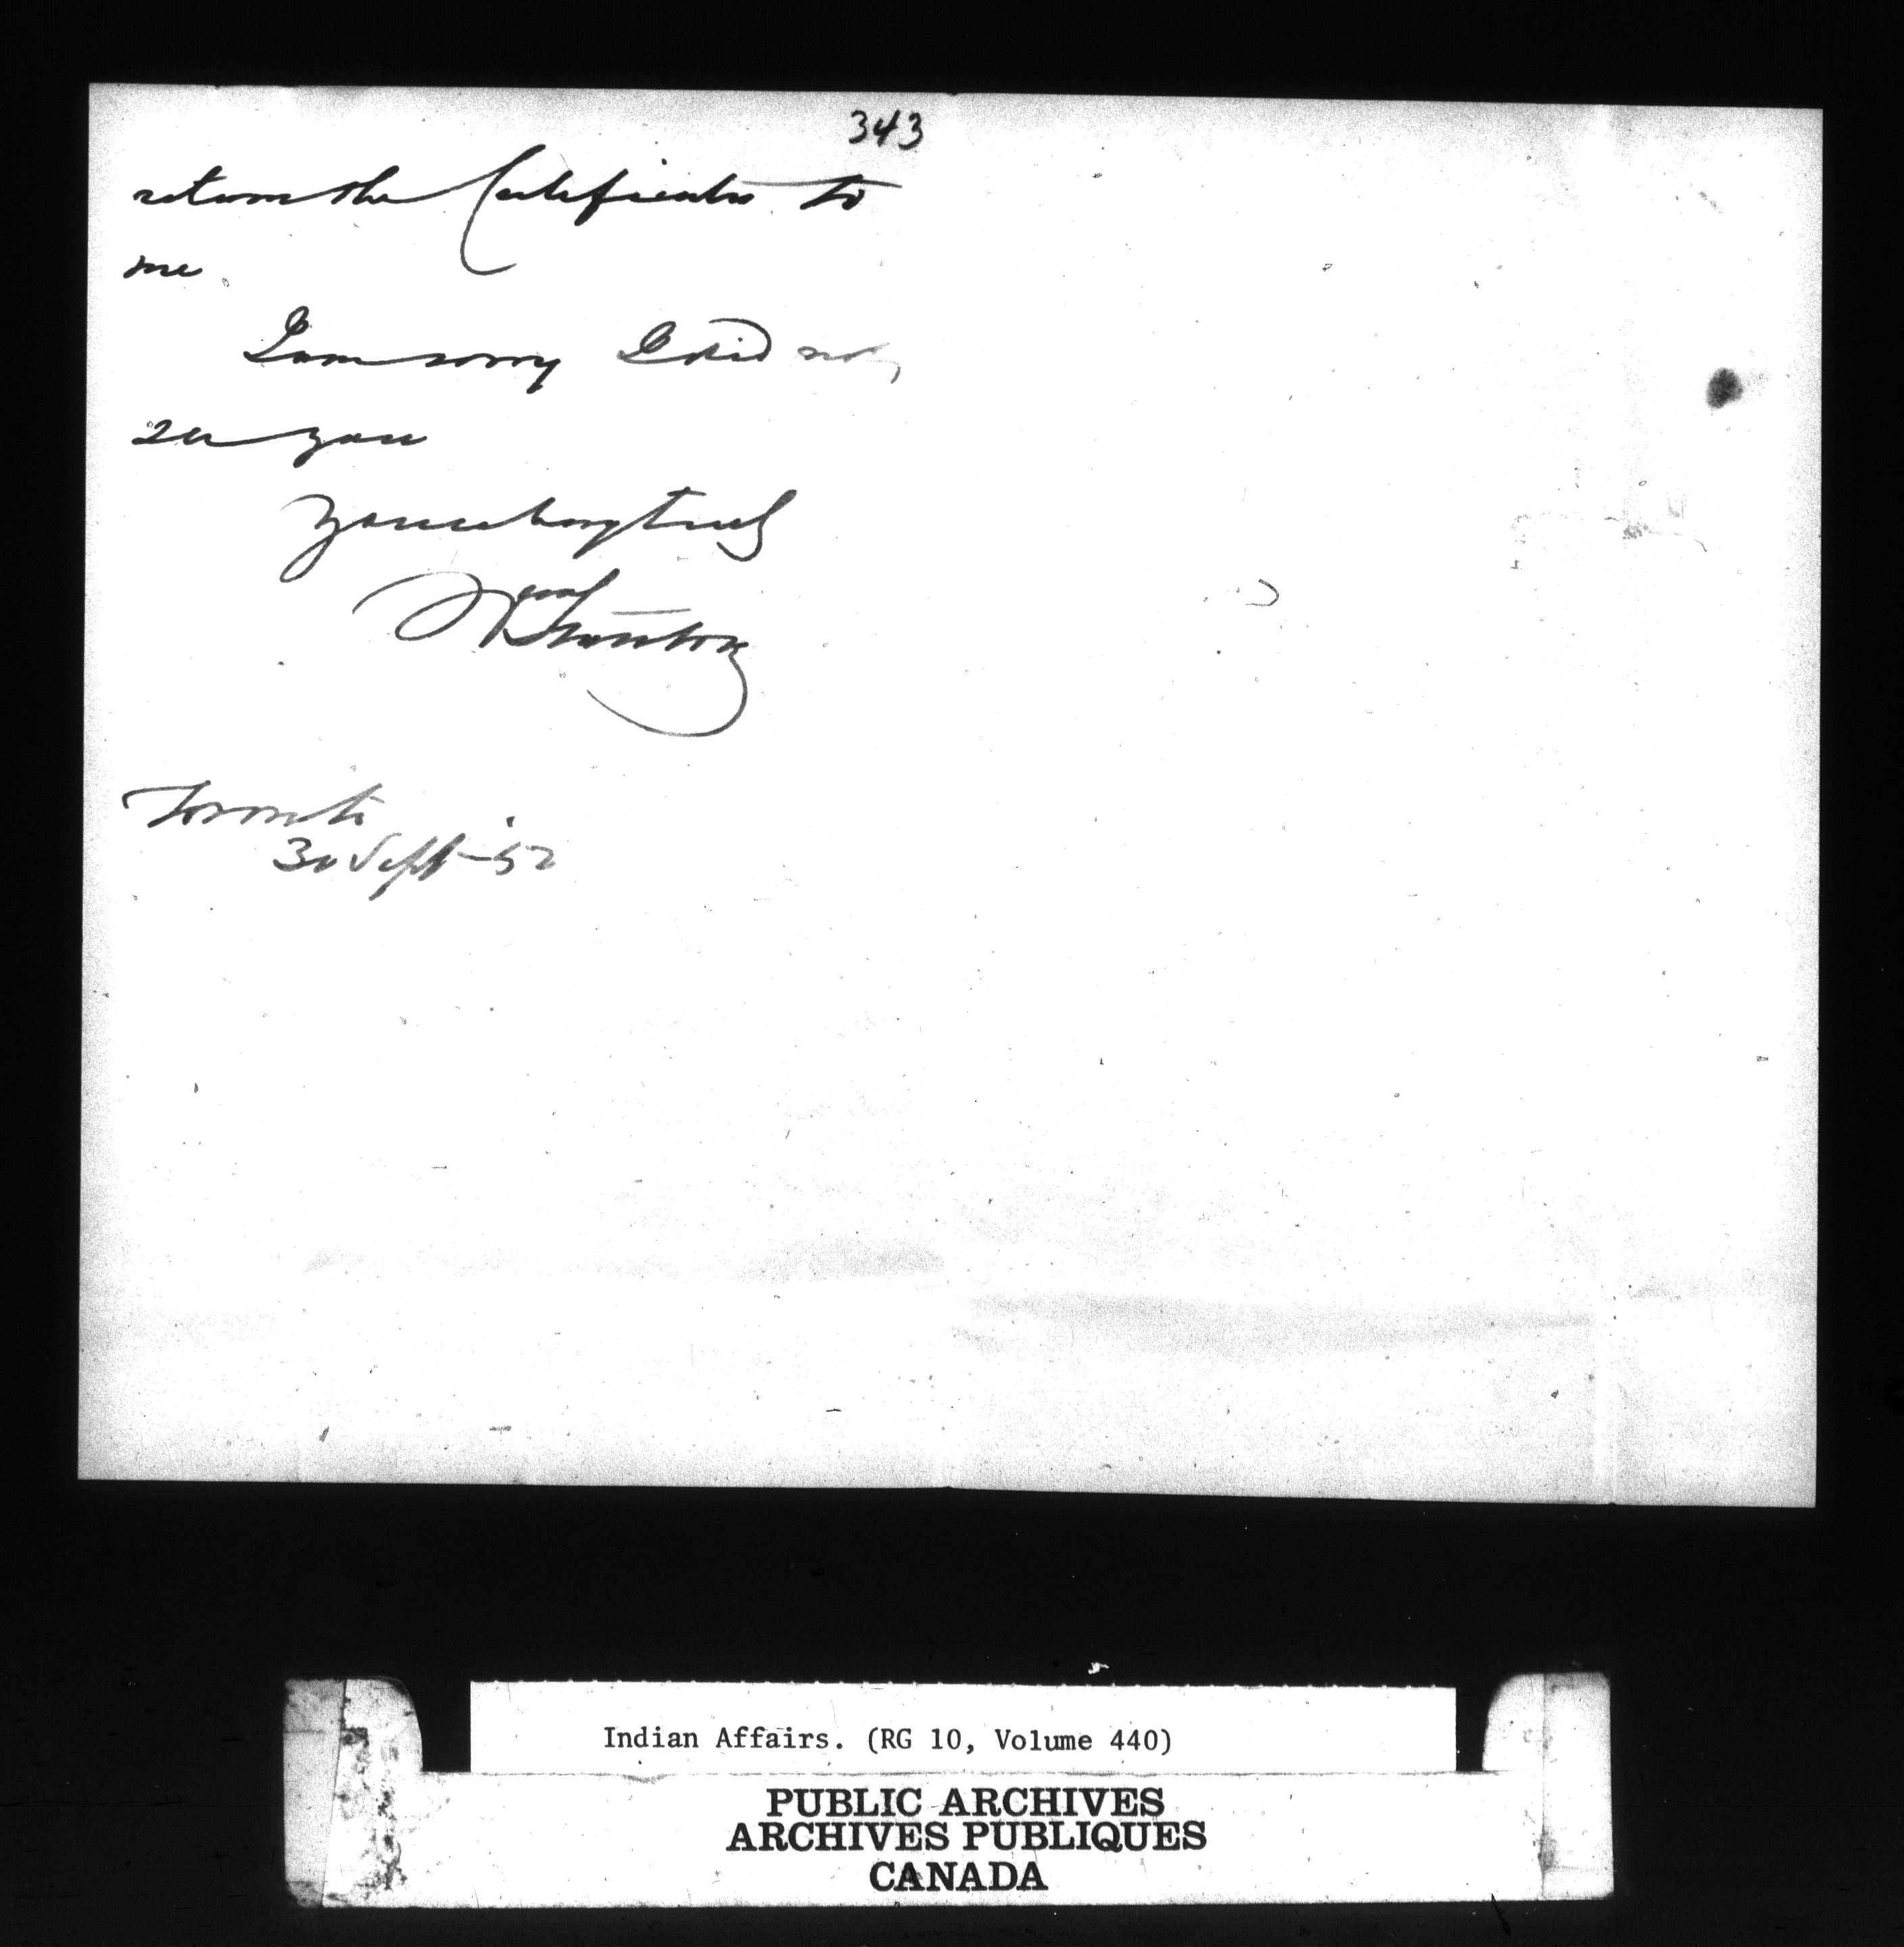 343
return the Certificate to
me
I am sorry I did not
see you
Yours very truly
Stanton
Toronto
30 Sept - 52
Indian Affairs. (RG 10, Volume 440)
PUBLIC ARCHIVES
ARCHIVES PUBLIQUES
CANADA